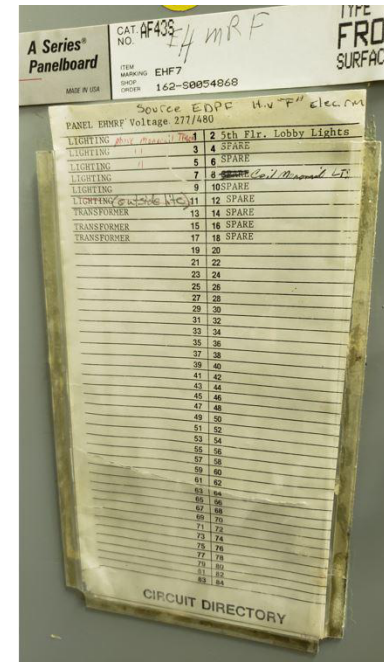 A Series®
Panelboard
MADE IN USA
CAT. NO. AF43S
EHMRF
ITEM MARKING EHF7
SHOP ORDER 162-S0054868
TYPE
FRO
SURFAC
Source EDPF H.V "F" Elec rm
PANEL EHMRF Voltage 277/480
LIGHTING 1 2 5th Flr. Lobby Lights
LIGHTING " 3 4 SPARE
LIGHTING " 5 6 SPARE
LIGHTING 7 8 SPARE LTS
LIGHTING 9 10 SPARE
LIGHTING (outside 11 12 SPARE
TRANSFORMER 13 14 SPARE
TRANSFORMER 15 16 SPARE
TRANSFORMER 17 18 SPARE
19 20
21 22
23 24
25 26
27 28
29 30
31 32
33 34
35 36
37 38
39 40
41 42
43 44
45 46
47 48
49 50
51 52
53 54
55 56
57 58
59 60
61 62
63 64
65 66
67 68
69 70
71 72
73 74
75 76
77 78
79 80
81 82
83 84
CIRCUIT DIRECTORY